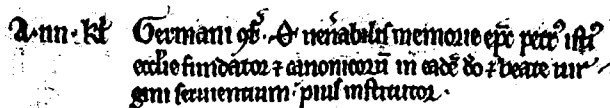 A·IIII·kl̄ Germani ɔf̄. O. uen̄abilis memorie ep̄c petr᷒ isti᷒
ecclie fundator ⁊ canonicoꝝ in eadē do ⁊ beate uir
gini seruientium· pius institutor·